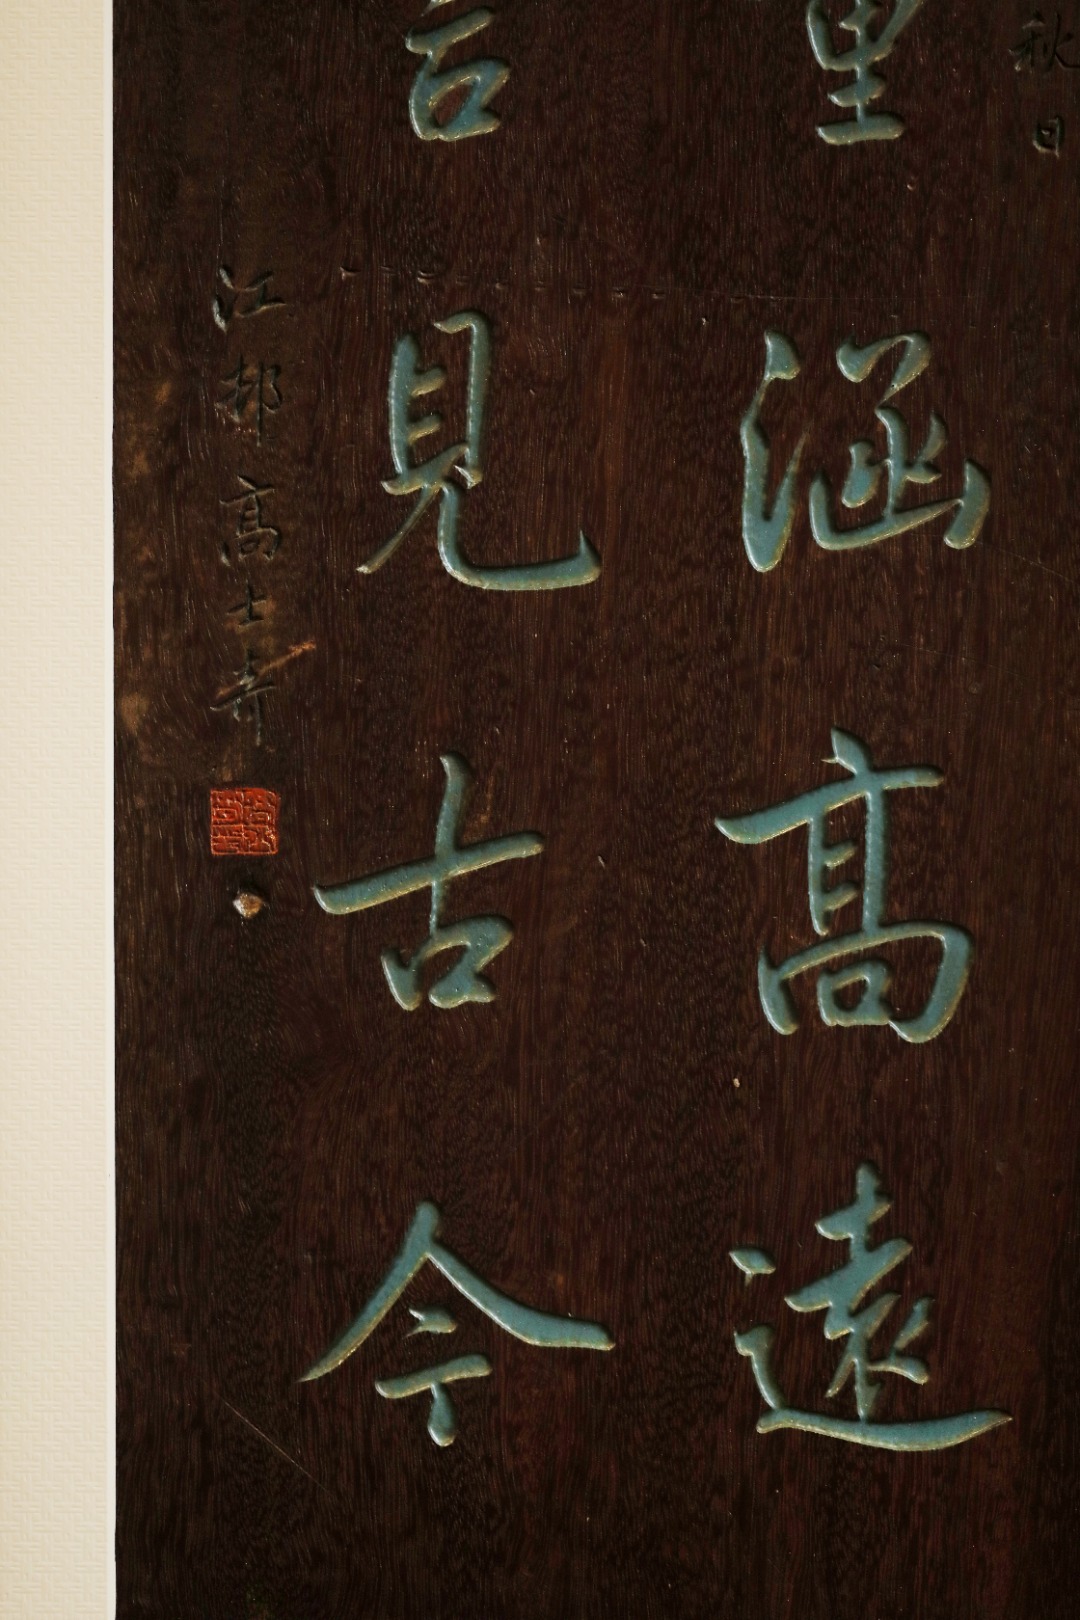 秋日
里涵高遠
言見古今
江邨高士奇